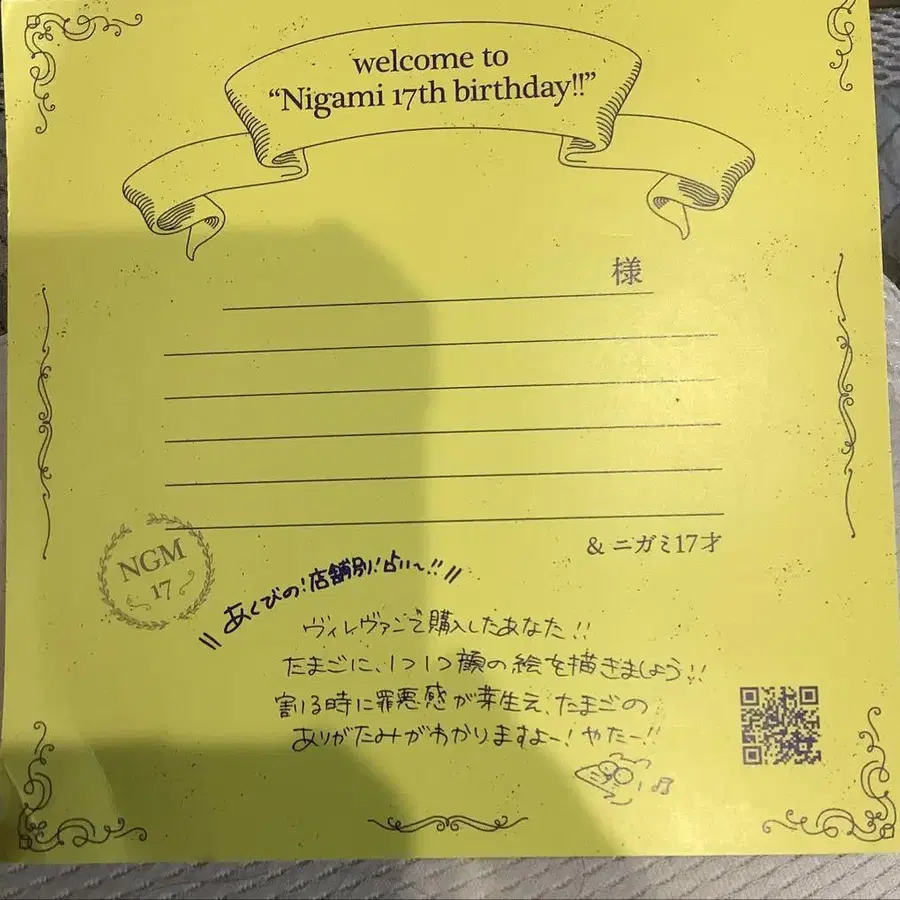 welcome to
“Nigami 17th birthday!!”
様
& ニガミ17才
NGM
17
\\ あくびの!店舗別!占い〜!! //
ヴィレヴァンで購入したあなた!!
たまごに、1つ1つ顔の絵を描きましょう!!
割る時に罪悪感が芽生え、たまごの
ありがたみがわかりますよー!やたー!!